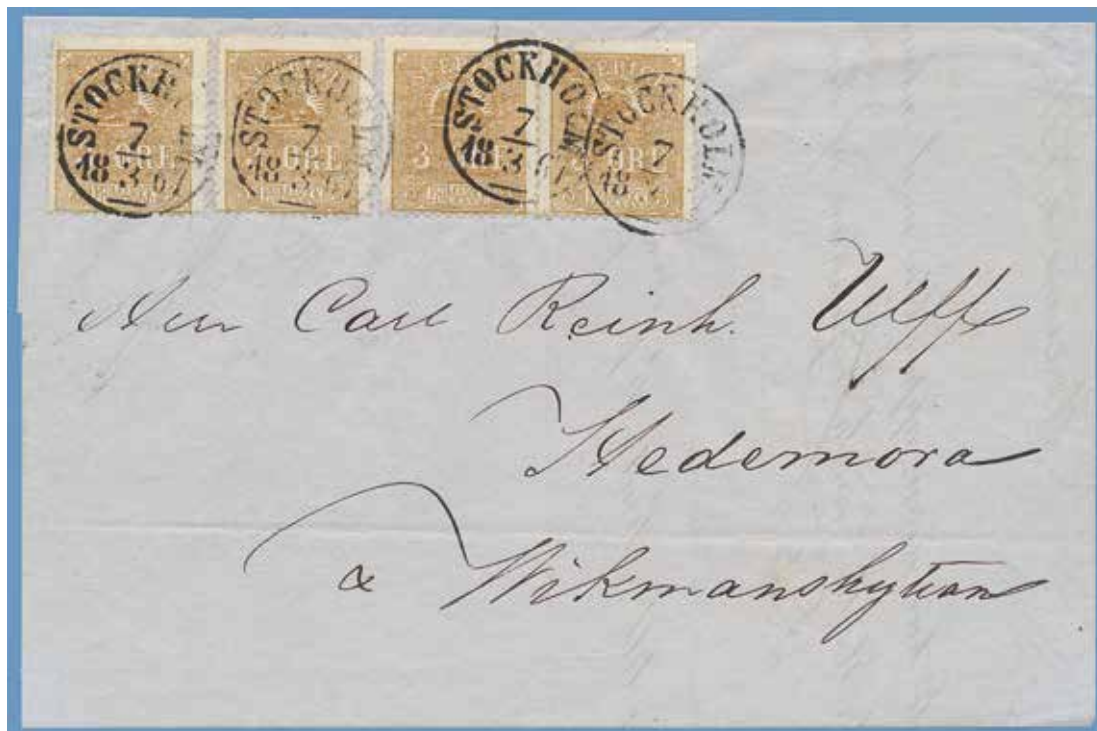 STOCKHOLM
7
18 3 67
STOCKHOLM
7
18 3 67
STOCKHOLM
7
18 3 67
STOCKHOLM
7
18
ÖRE
3 ÖRE
3 ÖRE
ÖRE
Herr Carl Reinh. Ulff
Hedemora
& Wikmanshyttan